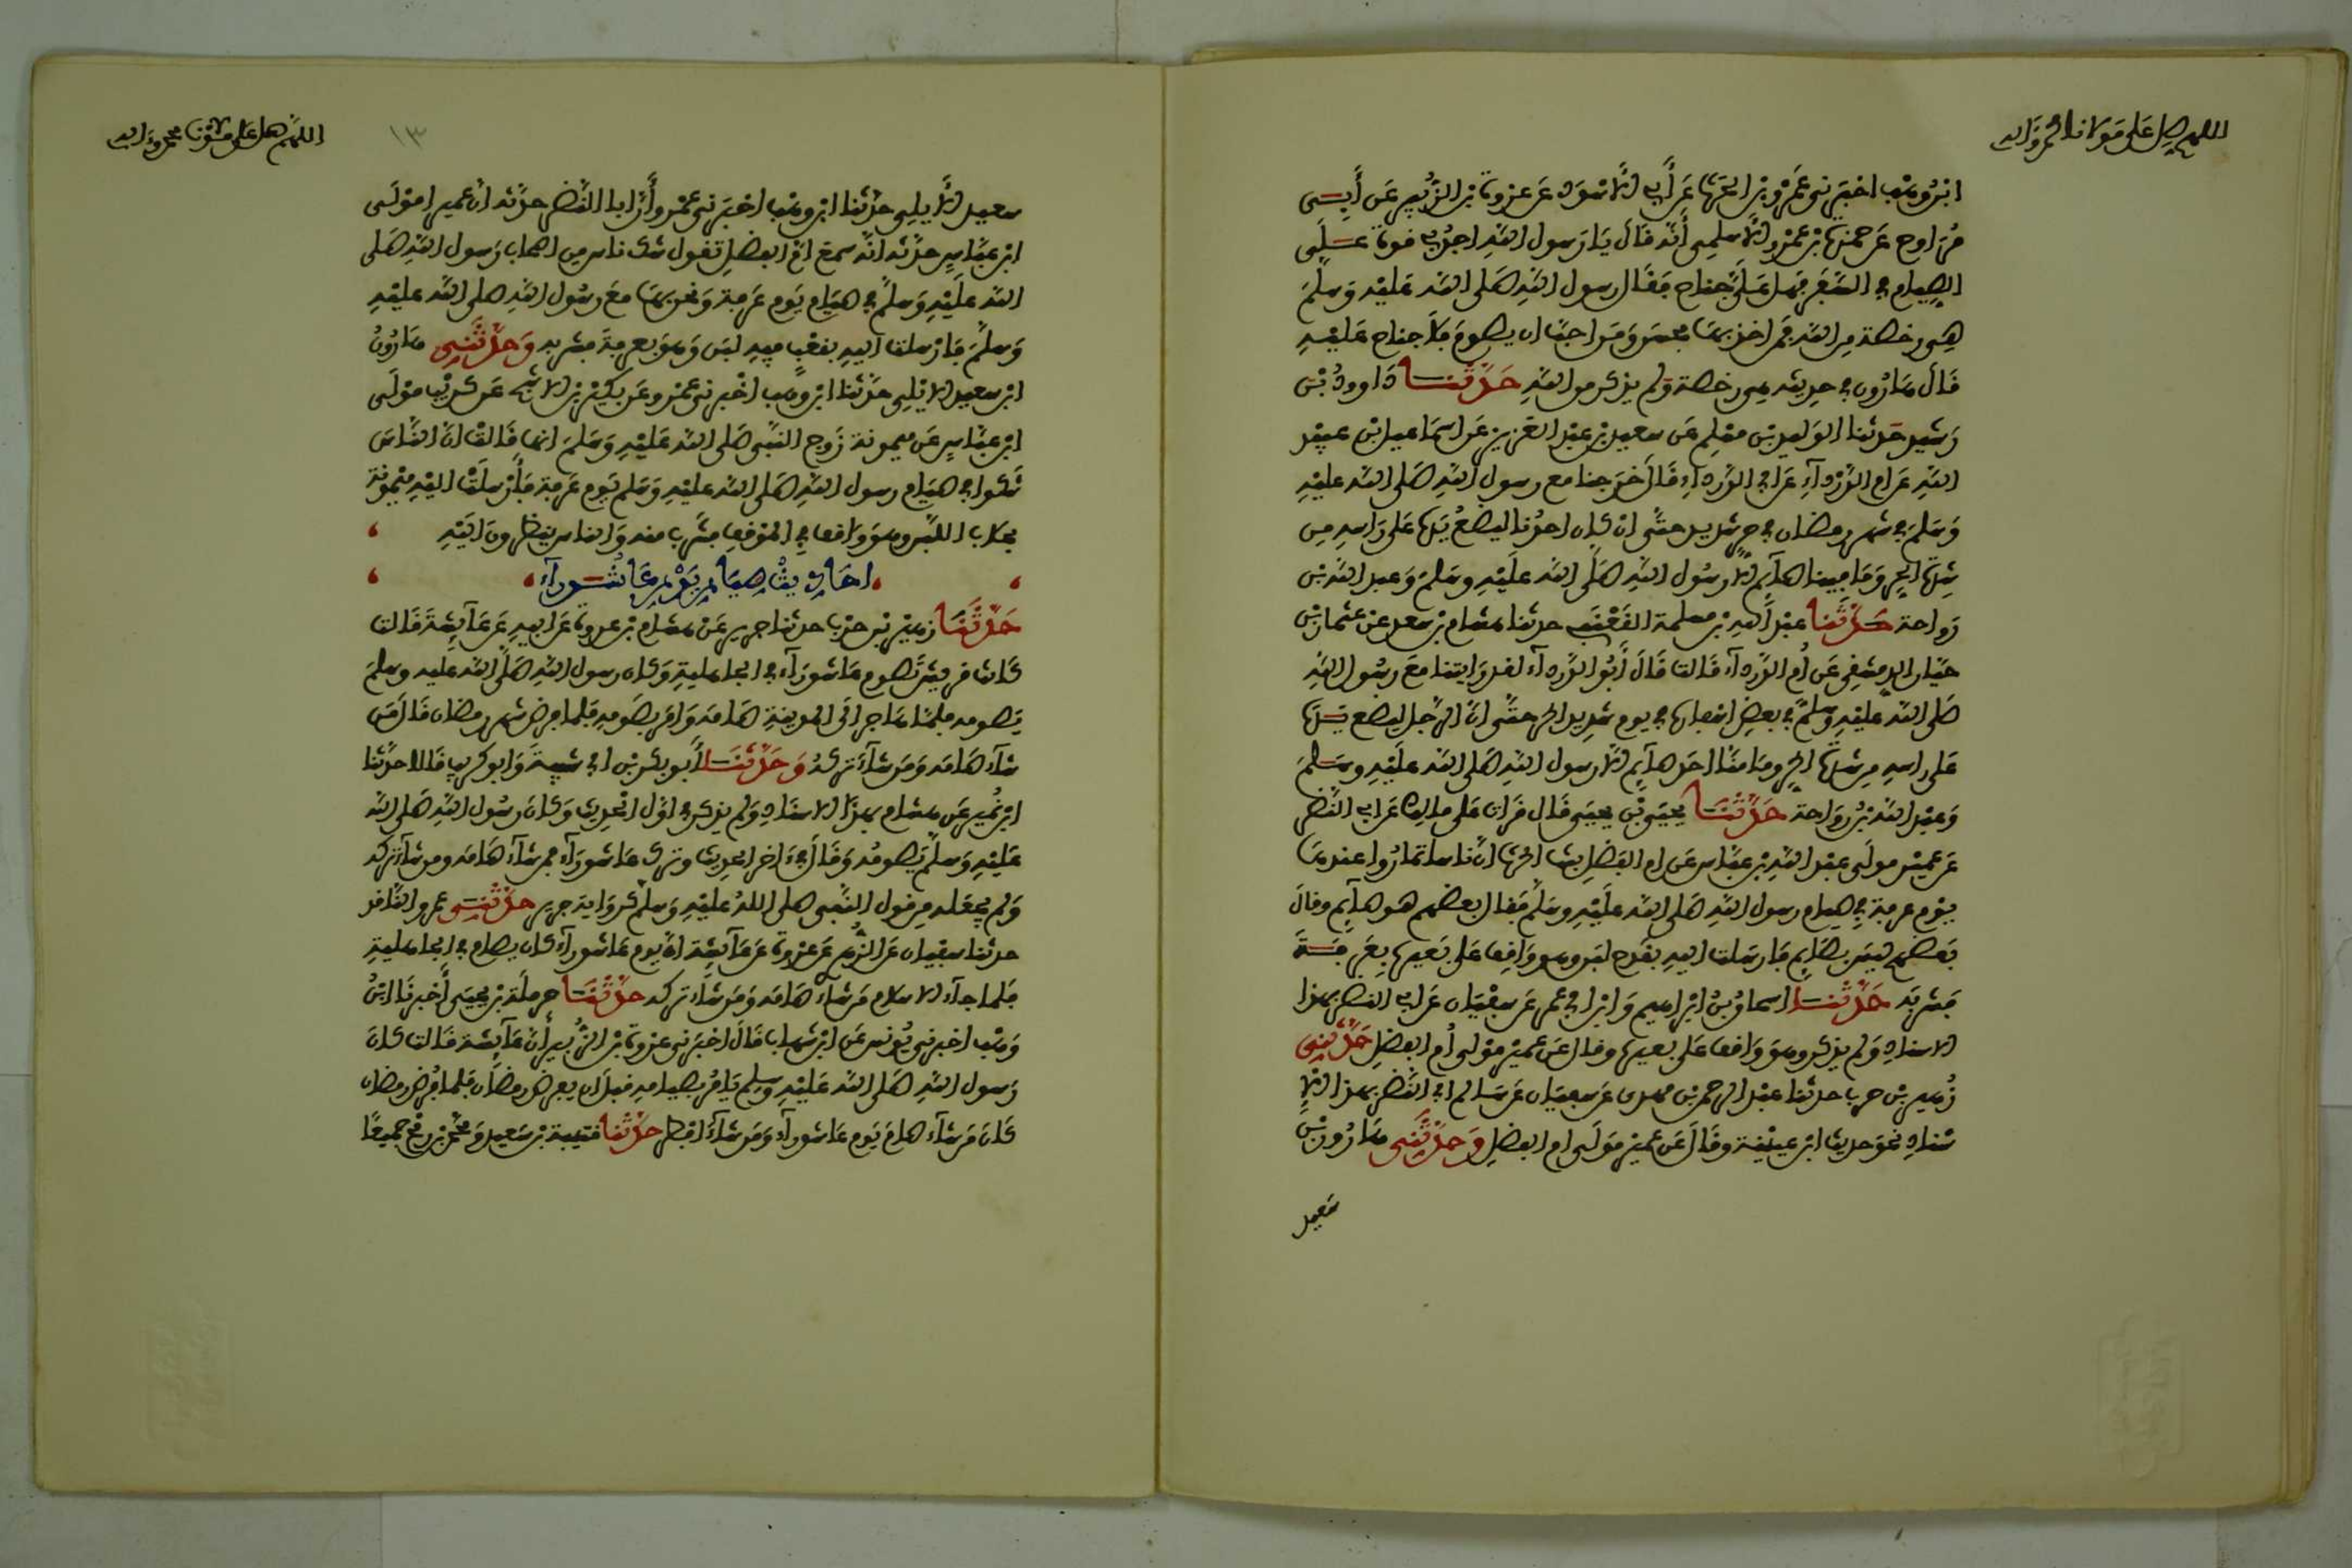 اللهم صل على مولانا محمد واله
ابن وهب اخبرني عمرو بن الحرث عن أبي الاسود عن عروة بن الزبير عن أبي
مراوح عن حمزة بن عمرو الاسلمي أنه قال يا رسول الله اجد بي قوة على
الصيام في السفر فهل علي جناح فقال رسول الله صلى الله عليه وسلم
هي رخصة من الله فمن اخذ بها فحسن ومن احب ان يصوم فلا جناح عليه
قال هارون في حديثه هي رخصة ولم يذكر من الله حدثنا داوود بن
رشيد حدثنا الوليد بن مسلم عن سعيد بن عبد العزيز عن اسماعيل بن عبيد
الله عن ام الدرداء عن ابي الدرداء قال خرجنا مع رسول الله صلى الله عليه
وسلم في شهر رمضان في حر شديد حتى ان كان احدنا ليضع يده على راسه من
شدة الحر وما فينا صآئم الا رسول الله صلى الله عليه وسلم وعبد الله بن
رواحة حدثنا عبد الله بن مسلمة القعنبي حدثنا هشام بن سعد عن عثمان بن
حيان الدمشقي عن أم الدرداء قالت قال أبو الدرداء لقد رايتنا مع رسول الله
صلى الله عليه وسلم في بعض اسفاره في يوم شديد الحر حتى ان الرجل ليضع يده
على راسه من شدة الحر وما منا احد صآئم الا رسول الله صلى الله عليه وسلم
وعبد الله بن رواحة حدثنا يحيى بن يحيى قال قرات على مالك عن ابي النضر
عن عمير مولى عبد الله بن عباس عن ام الفضل بنت الحرث ان ناسا تماروا عندها
يوم عرفة في صيام رسول الله صلى الله عليه وسلم فقال بعضهم هو صآئم وقال
بعضهم ليس بصائم فارسلت اليه بقدح لبن وهو واقف على بعيره بعرفة
فشربه حدثنا اسحاق بن ابراهيم وابن ابي عمر عن سفيان عن ابي النضر بهذا
الاسناد ولم يذكر وهو واقف على بعيره وقال عن عمير مولى أم الفضل حدثني
زهير بن حرب حدثنا عبد الرحمن بن مهدي عن سفيان عن سالم ابي النضر بهذا الا
سناد نحو حديث ابن عيينة وقال عن عمير مولى ام الفضل وحدثني هارون بن
سعيد
اللهم صل على مولانا محمد واله
١٣
سعيد الايلي حدثنا ابن وهب اخبرني عمرو أن ابا النضر حدثه ان عميرا مولى
ابن عباس حدثه انه سمع ام الفضل تقول شك ناس من اصحاب رسول الله صلى
الله عليه وسلم في صيام يوم عرفة ونحن بها مع رسول الله صلى الله عليه
وسلم فارسلت اليه بقعب فيه لبن وهو بعرفة فشربه وحدثني هارون
ابن سعيد الايلي حدثنا ابن وهب اخبرني عمرو عن بكير بن الاشج عن كريب مولى
ابن عباس عن ميمونة زوج النبي صلى الله عليه وسلم انها قالت ان الناس
شكوا في صيام رسول الله صلى الله عليه وسلم يوم عرفة فأرسلت اليه ميمونة
بحلاب اللبن وهو واقف في الموقف فشرب منه والناس ينظرون اليه
احاديث صيام يوم عاشوراء
حدثنا زهير بن حرب حدثنا جرير عن هشام بن عروة عن ابيه عن عآئشة قالت
كانت قريش تصوم عاشوراء في الجاهلية وكان رسول الله صلى الله عليه وسلم
يصومه فلما هاجر الى المدينة صامه وامر بصومه فلما فرض شهر رمضان قال من
شاء صامه ومن شاء تركه وحدثنا أبو بكر بن ابي شيبة وابو كريب قالا حدثنا
ابن نمير عن هشام بهذا الاسناد ولم يذكر في اول الحديث وكان رسول الله صلى الله
عليه وسلم يصومه وقال في ءاخر الحديث وترك عاشوراء فمن شاء صامه ومن شاء تركه
ولم يجعله من قول النبي صلى الله عليه وسلم كرواية جرير حدثني عمرو الناقد
حدثنا سفيان عن الزهري عن عروة عن عآئشة ان يوم عاشوراء كان يصام في الجاهلية
فلما جاء الاسلام من شاء صامه ومن شاء تركه حدثنا حرملة بن يحيى أخبرنا ابن
وهب اخبرني يونس عن ابن شهاب قال اخبرني عروة بن الزبير أن عآئشة قالت كان
رسول الله صلى الله عليه وسلم يامر بصيامه قبل ان يفرض رمضان فلما فرض رمضان
كان من شاء صام يوم عاشوراء ومن شاء افطر حدثنا قتيبة بن سعيد ومحمد بن رمح جميعا